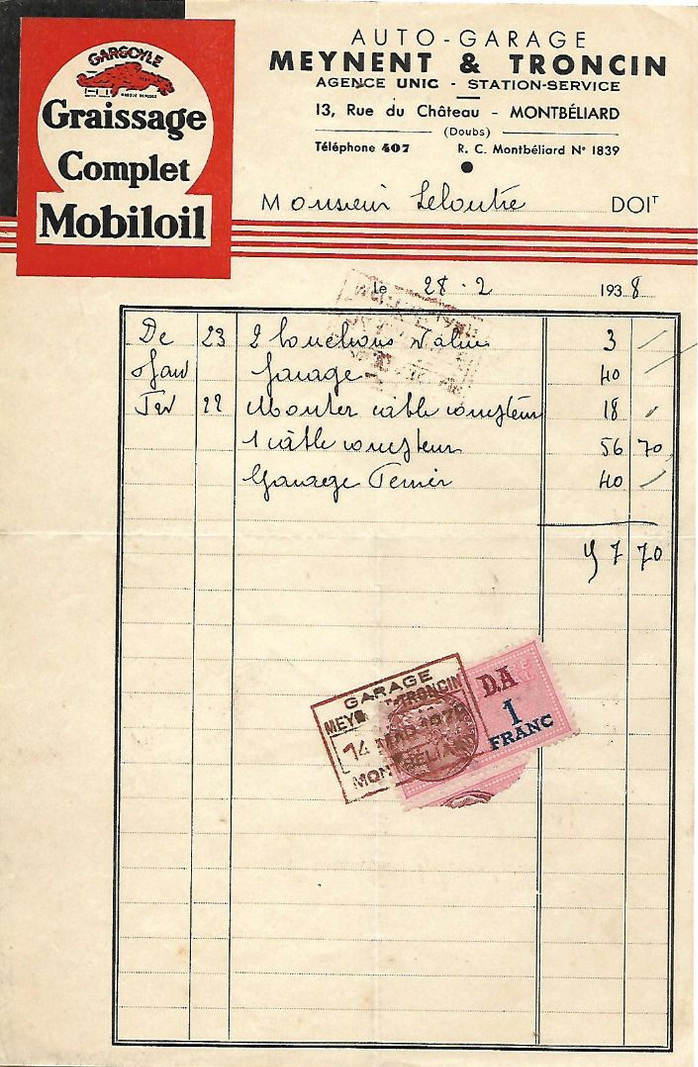 GARGOYLE
Graissage
Complet
Mobiloil
AUTO-GARAGE
MEYNENT & TRONCIN
AGENCE UNIC - STATION-SERVICE
13, Rue du Château - MONTBÉLIARD
(Doubs)
Téléphone 407 R. C. Montbéliard N° 1839
Monsieur Leloutre DOIT
Le 28.2 1938
De 23 2 bouchons 3
Janv Garage 40
Fev 22 Monter câble compteur 18
1 câble compteur 56 70
Garage Fevrier 40
57 70
D.A
1
FRANC
GARAGE
MEYNENT & TRONCIN
14
MONTBÉLIARD